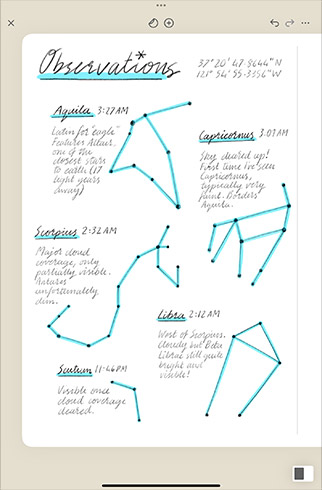 Observations
37° 20' 47.8644" N
121° 54' 55.3356" W
Aquila 3:27 AM
Latin for "eagle"
Features Altair,
one of the
closest stars
to earth (17
light years
away)
Capricornus 3:01 AM
Sky cleared up!
First time I've seen
Capricornus,
typically very
faint. Borders
Aquila.
Scorpius 2:32 AM
Major cloud
coverage, only
partially visible.
Antares
unfortunately
dim.
Libra 2:12 AM
West of Scorpius.
Cloudy but Beta
Librae still quite
bright and
visible!
Scutum 11:46 PM
Visible once
cloud coverage
cleared.